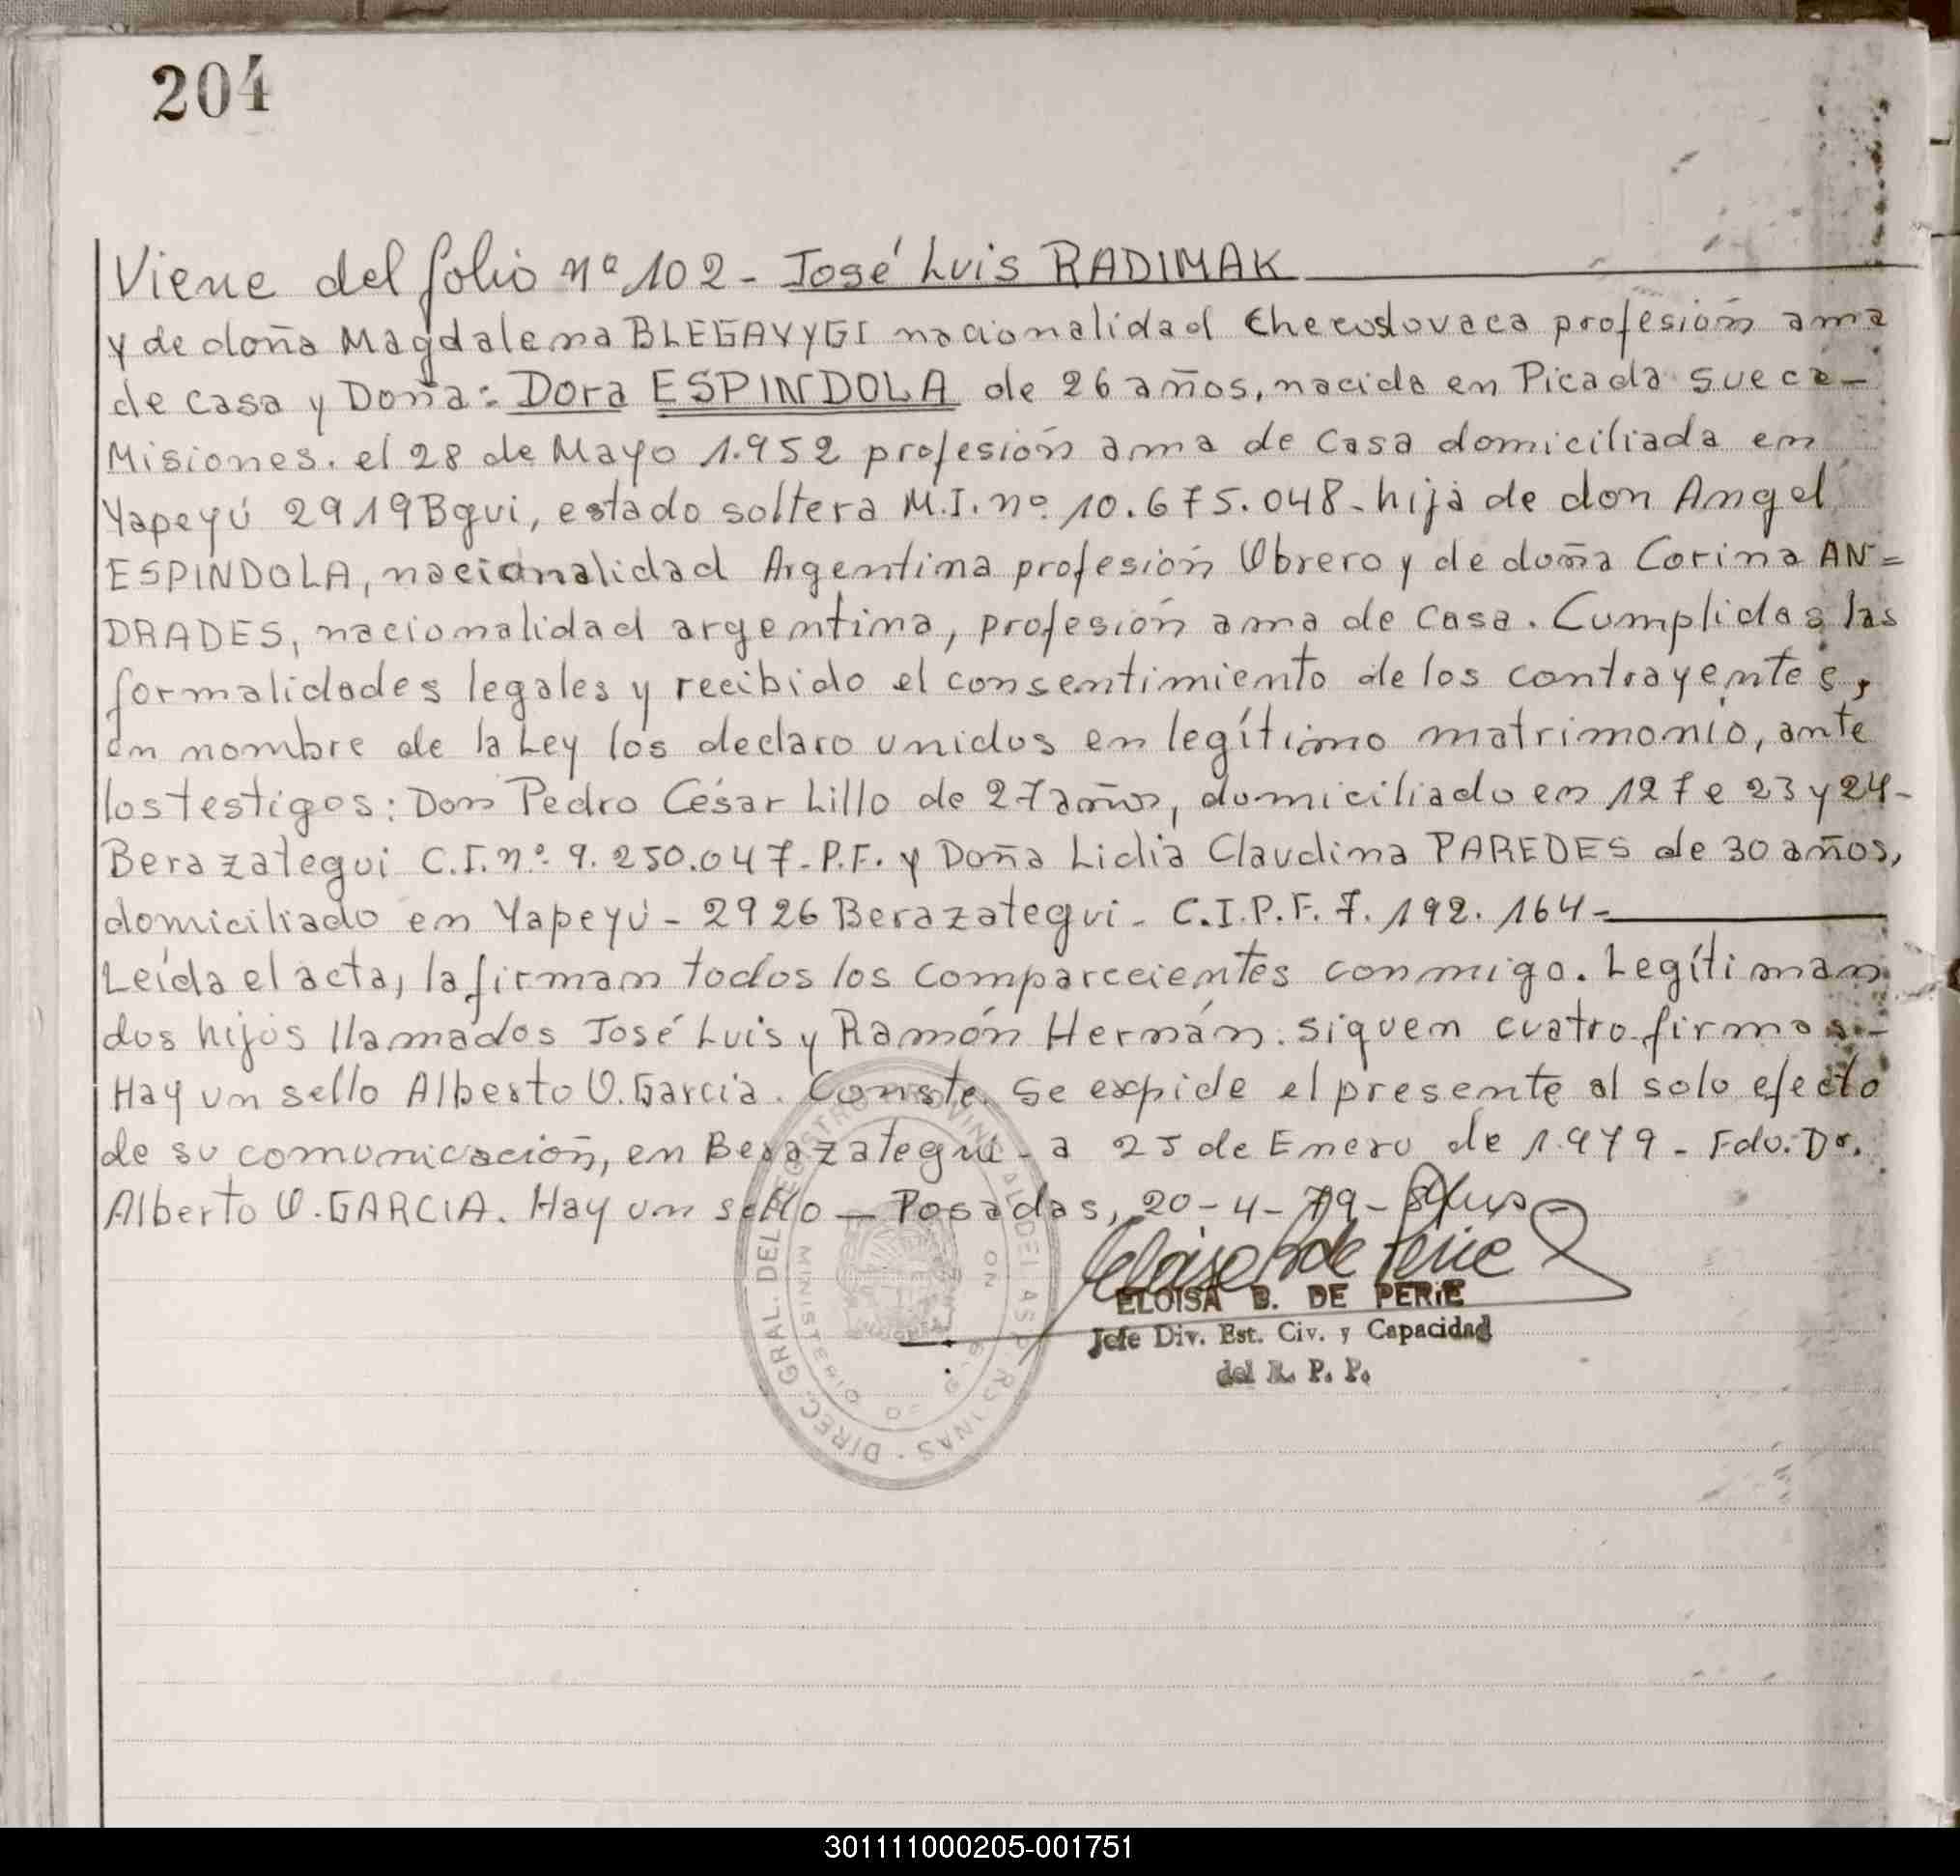 204
Viene del folio nº 102 - José Luis RADIMAK
y de doña Magdalena BLEGAVYGI nacionalidad Checoslovaca profesión ama
de casa y Doña: Dora ESPINDOLA de 26 años, nacida en Picada Sueca-
Misiones. el 28 de Mayo 1.952 profesión ama de casa domiciliada en
Yapeyú 2919 Bgui, estado soltera M.I. nº 10.675.048- hija de don Angel
ESPINDOLA, nacionalidad Argentina profesión Obrero y de doña Corina AN=
DRADES, nacionalidad argentina, profesión ama de casa. Cumplidas las
formalidades legales y recibido el consentimiento de los contrayentes,
en nombre de la Ley los declaro unidos en legítimo matrimonio, ante
los testigos: Don Pedro César Lillo de 27 años, domiciliado en 127 e 23 y 24-
Berazategui C.I. nº 9.250.047- P.F. y Doña Lidia Claudina PAREDES de 30 años,
domiciliado en Yapeyú - 2926 Berazategui - C.I.P.F. 7.192.164-
Leída el acta, la firman todos los comparecientes conmigo. Legítiman
dos hijos llamados José Luis y Ramón Hernán. siguen cuatro firmas.-
Hay un sello Alberto O. Garcia. Conste. Se expide el presente al solo efecto
de su comunicación, en Berazategui - a 25 de Enero de 1.979 - Fdo. Dr.
Alberto O. GARCIA. Hay un sello - Posadas, 20-4-79-
Eloisa B de Perie
ELOISA B. DE PERIE
Jefe Div. Est. Civ. y Capacidad
del R. P. P.
DIREC. GRAL. DEL REGISTRO PROVINCIAL DE LAS PERSONAS
MINISTERIO
301111000205-001751